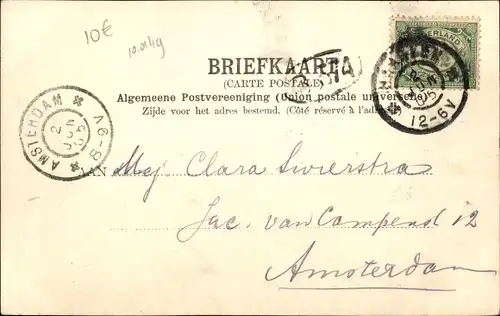 10€
10.01.19
BRIEFKAART
(CARTE POSTALE)
Algemeene Postvereeniging (Union postale universelle)
Zijde voor het adres bestemd. (Côté réservé à l'adr
AMSTERDAM
2
JUN
05
6-9V
12-6V
AAN Mej. Clara Sivierstra
Jac. van Campend 12
Amsterdam